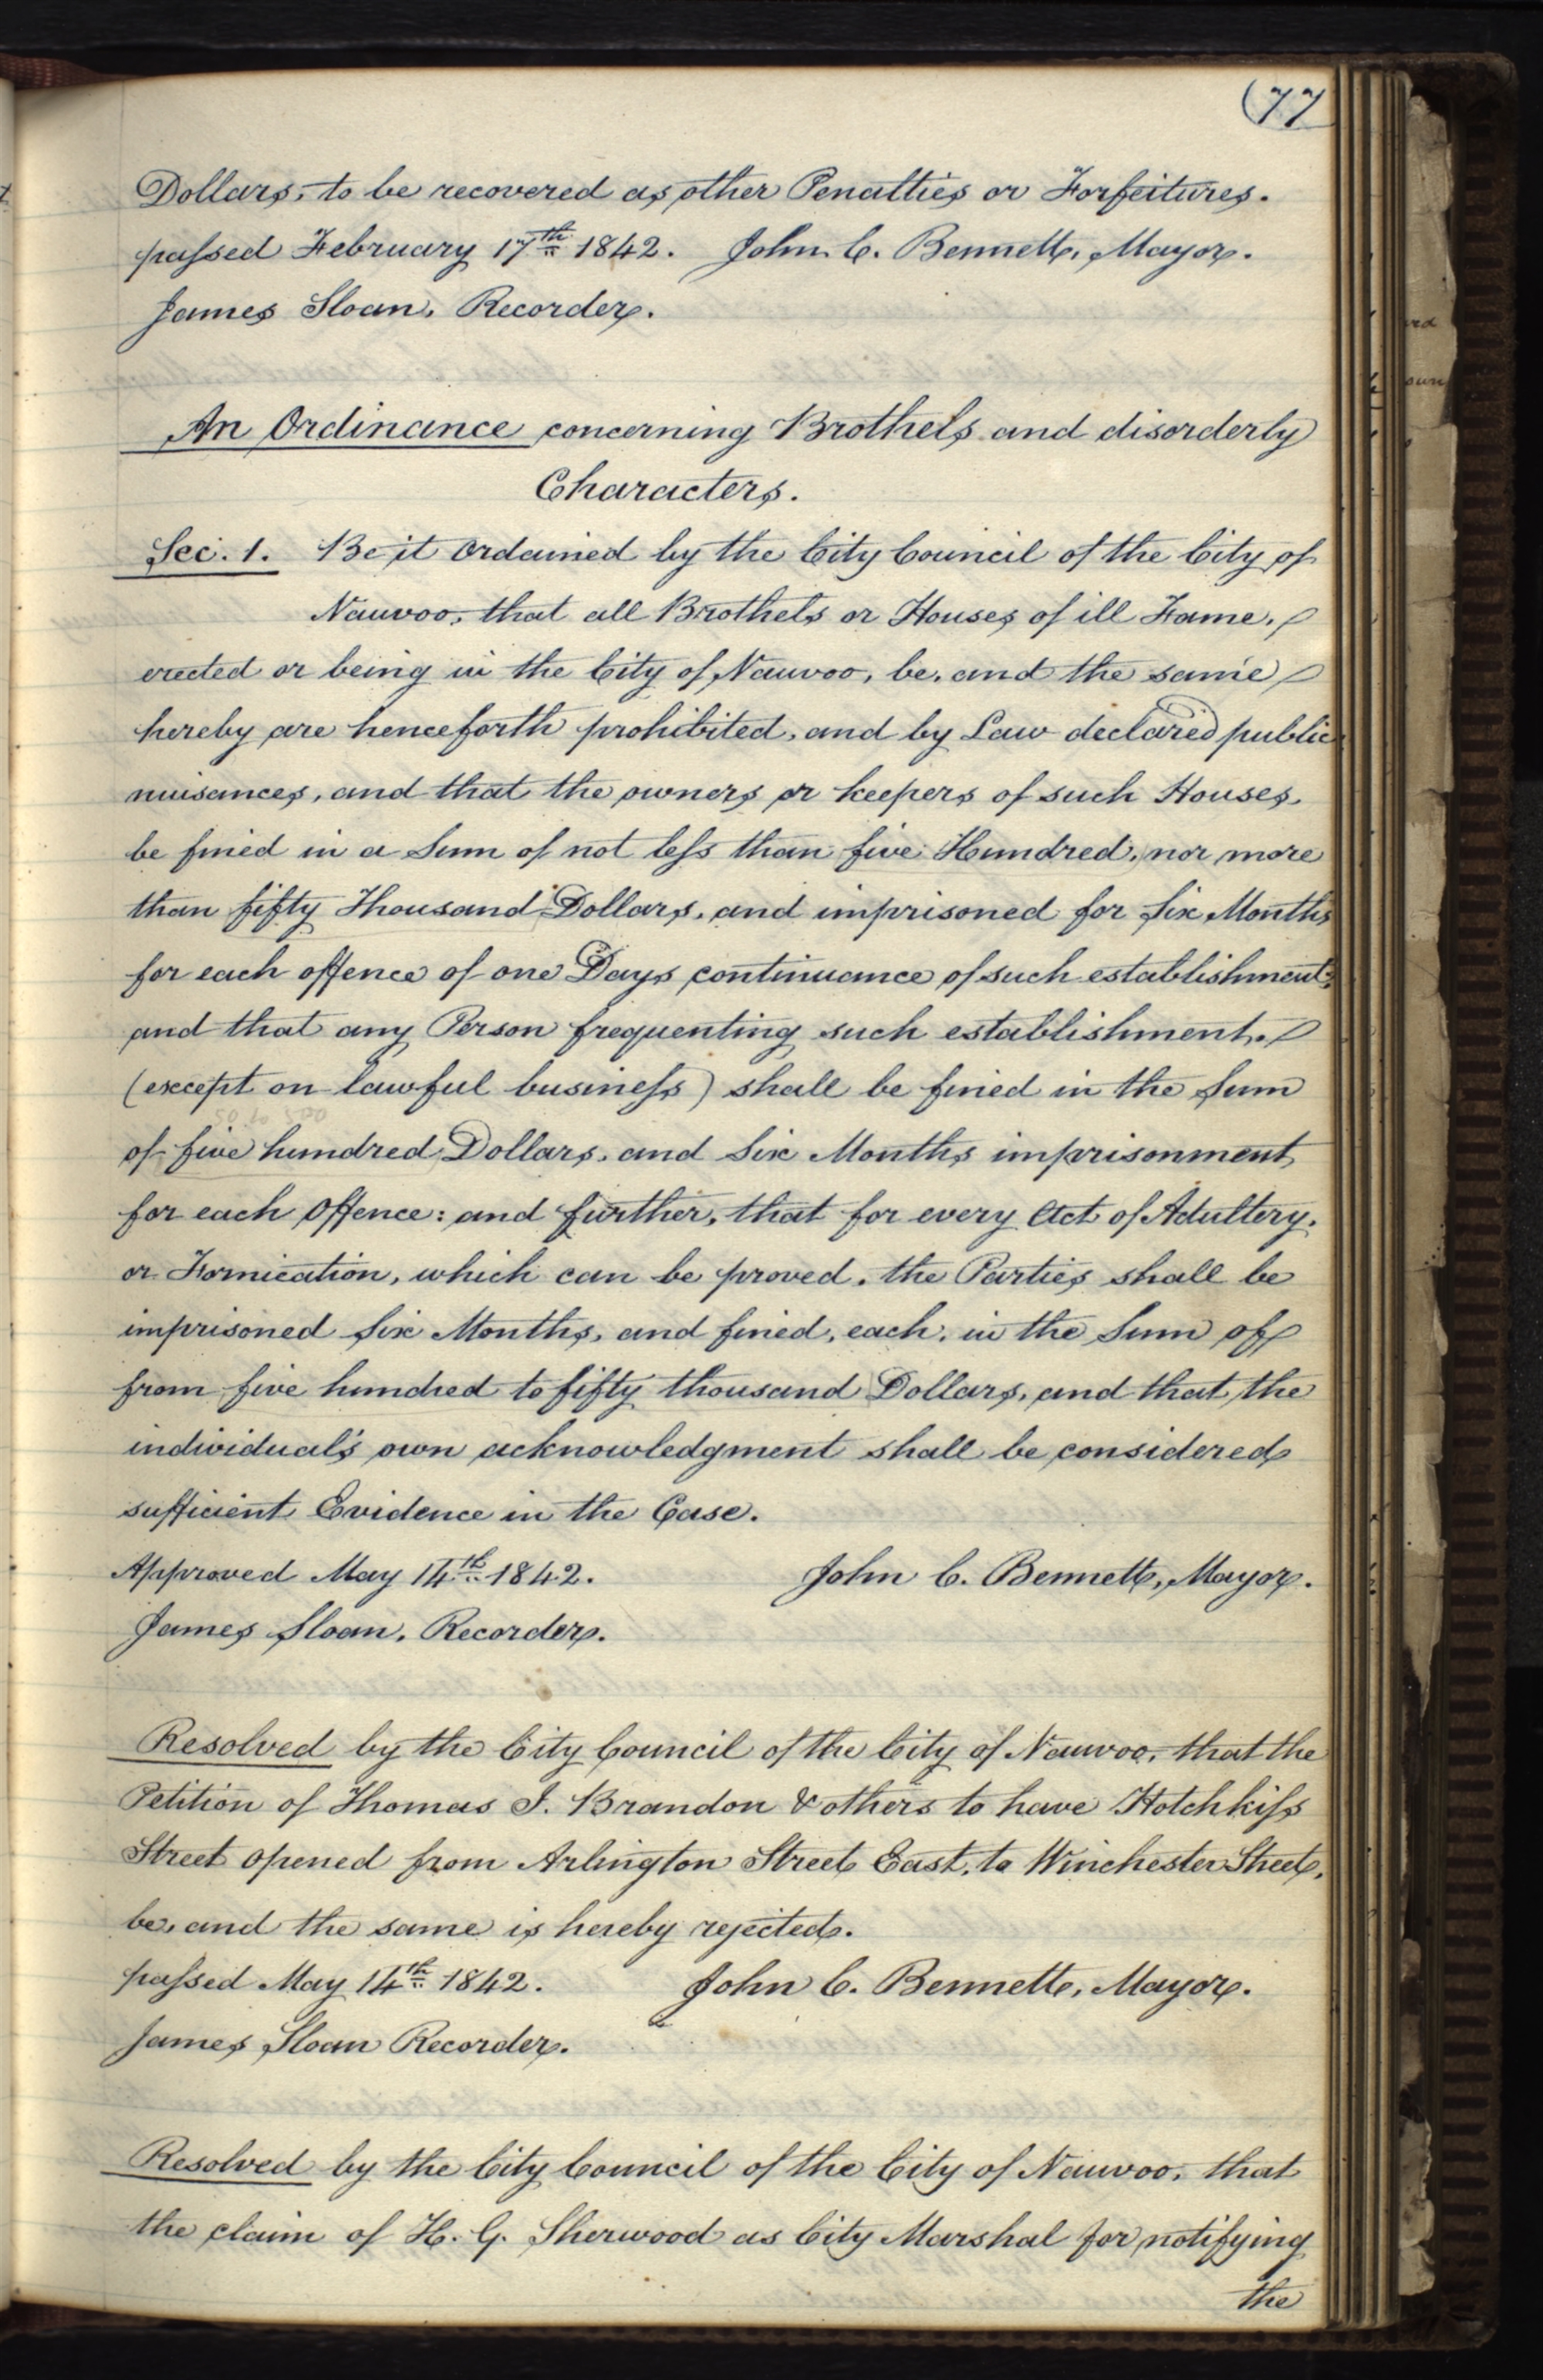 (77
Dollars, to be recovered as other Penalties or Forfeitures.
passed February 17th 1842. John C. Bennett, Mayor.
James Sloan, Recorder.
An Ordinance concerning Brothels and disorderly
Characters.
Sec. 1. Be it Ordained by the City Council of the City of
Nauvoo, that all Brothels or Houses of ill Fame,
erected or being in the City of Nauvoo, be, and the same
hereby are henceforth prohibited, and by Law declared public
nuisances, and that the owners or keepers of such Houses,
be fined in a Sum of not less than five Hundred, nor more
than fifty Thousand Dollars, and imprisoned for Six Months
for each offence of one Days continuance of such establishment;
and that any Person frequenting such establishment,
(except on lawful business) shall be fined in the Sum
of five hundred Dollars, and Six Months imprisonment
for each Offence: and further, that for every Act of Adultery,
or Fornication, which can be proved, the Parties shall be
imprisoned Six Months, and fined, each, in the Sum of
from five hundred to fifty thousand Dollars, and that the
individual's own acknowledgment shall be considered
sufficient Evidence in the Case.
Approved May 14th 1842. John C. Bennett, Mayor.
James Sloan, Recorder.
Resolved by the City Council of the City of Nauvoo, that the
Petition of Thomas J. Brandon & others to have Hotchkiss
Street opened from Arlington Street East, to Winchester Street,
be, and the same is hereby rejected.
passed May 14th 1842. John C. Bennett, Mayor.
James Sloan Recorder.
Resolved by the City Council of the City of Nauvoo, that
the claim of H. G. Sherwood as City Marshal for notifying
the